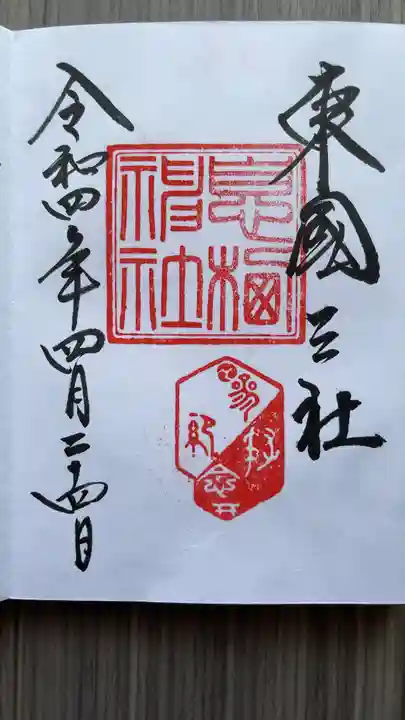 東國三社
息栖神社
令和四年四月二十四日